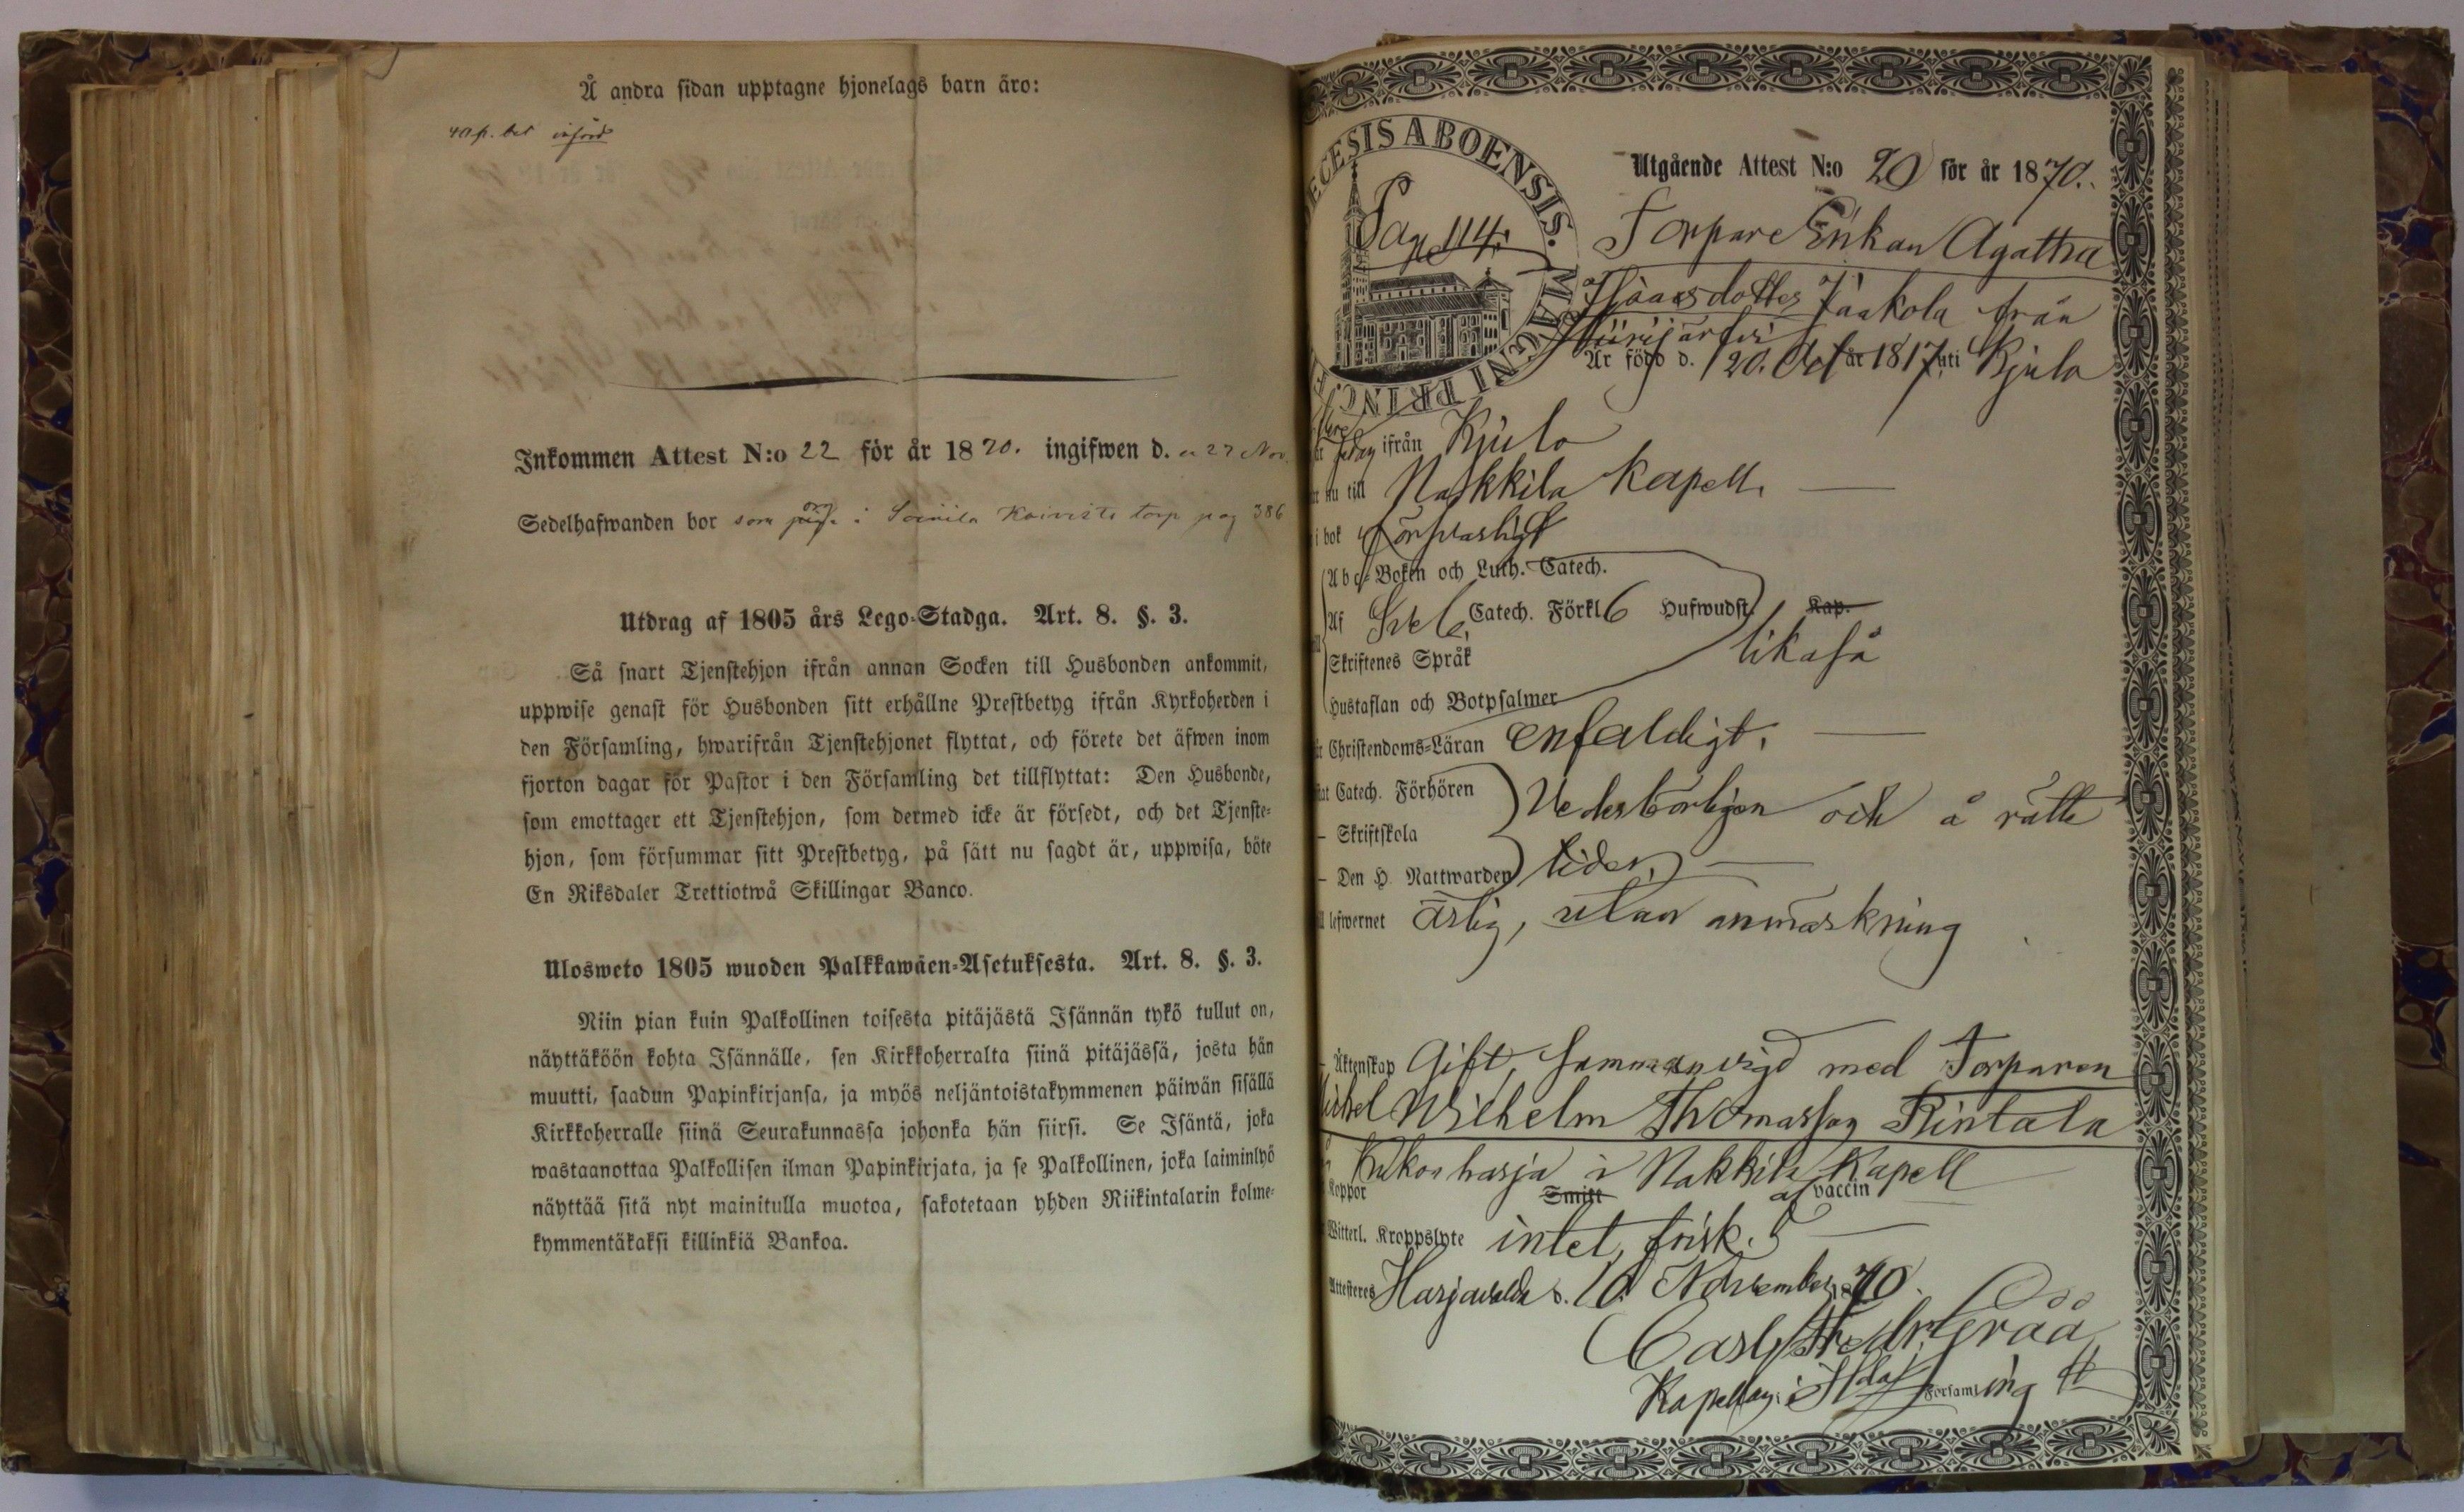 Å andra sidan upptagne hjonelags barn äro:
40 p. bet införd
Inkommen Attest N:o 22 för år 1870. ingifwen d. 27 Nov.
Sedelhafwanden bor som i Soinila Koivisto torp pag 386
Utdrag af 1805 års Lego-Stadga. Art. 8. §. 3.
Så snart Tjenstehjon ifrån annan Socken till Husbonden ankommit,
uppwise genast för Husbonden sitt erhållne Prestbetyg ifrån Kyrkoherden i
den Församling, hwarifrån Tjenstehjonet flyttat, och förete det äfwen inom
fjorton dagar för Pastor i den Församling det tillflyttat: Den Husbonde,
som emottager ett Tjenstehjon, som dermed icke är försedt, och det Tjenste-
hjon, som försummar sitt Prestbetyg, på sätt nu sagdt är, uppwisa, böte
En Riksdaler Trettiotwå Skillingar Banco.
Ulosweto 1805 wuoden Palkkawäen-Asetuksesta. Art. 8. §. 3.
Niin pian kuin Palkollinen toisesta pitäjästä Isännän tykö tullut on,
näyttäköön kohta Isännälle, sen Kirkkoherralta siinä pitäjässä, josta hän
muutti, saadun Papinkirjansa, ja myös neljäntoistakymmenen päiwän sisällä
Kirkkoherralle siinä Seurakunnassa johonka hän siirsi. Se Isäntä, joka
wastaanottaa Palkollisen ilman Papinkirjata, ja se Palkollinen, joka laiminlyö
näyttää sitä nyt mainitulla muotoa, sakotetaan yhden Riikintalarin kolme-
kymmentäkaksi killinkiä Bankoa.
ECESIS ABOENSIS. MAGNI PRINC
Pag 114.
Utgående Attest N:o 20 för år 1870.
Torpare Enkan Agatha
Isaacsdotter Jaakola från
Hiirijärfvi
Är född d. 20. Oct år 1817 uti Kjulo
ifrån Kjulo
nu till Nakkila Kapell.
i bok försvarligt
Abc-Boken och Luth. Catech.
Af Svebe. Catech. Förkl. 6 Hufwudst. Kap.
likaså
Skriftenes Språk
Hustaflan och Botpsalmer
Christendoms-Läran enfaldigt.
Catech. Förhören
Vederbörligen och å rätta
– Skriftskola
– Den H. Nattwarden tider.
lefwernet ärlig, utan anmärkning
– Äktenskap Gift, sammanvigd med Torparen
Michel Wilhelm Thomasson Rintala
Kukonharja i Nakkila Kapell
Koppor Smitt af vaccin
Witterl. Kroppslyte intet, frisk.
Attesteras Harjavalda d. 10 November 1870.
Carl Fredr. Gråå
Kapellan i Hdaf Församling